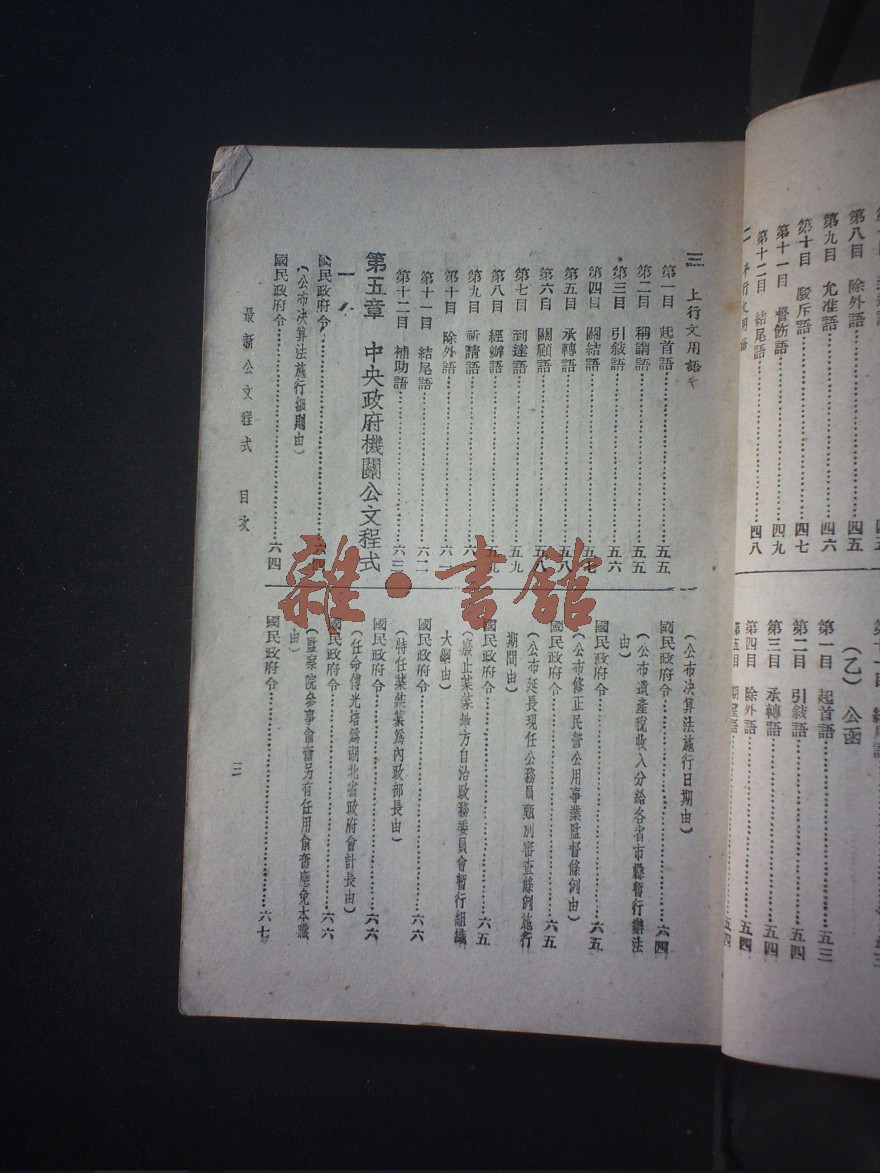 第八目 除外語……四五
第九目 允准語……四六
第十目 駁斥語……四七
第十一目 督飭語……四九
第十二目 結尾語……四八
(乙) 公函
第一目 起首語……五三
第二目 引敍語……五四
第三目 承轉語……五四
第四目 除外語……五四
第五目 期望語……五四
三 上行文用語
第一目 起首語……五五
第二目 稱謂語……五五
第三目 引敍語……五六
第四目 關結語……五七
第五目 承轉語……五八
第六目 關顧語……五八
第七目 到達語……五九
第八目 經辦語……五九
第九目 祈請語……六
第十目 除外語……六一
第十一目 結尾語……六二
第十二目 補助語……六三
第五章 中央政府機關公文程式
一 令
國民政府令……六四
(公布決算法施行細則由)
國民政府令……六四
(公布決算法施行日期由)
國民政府令……六四
(公布遺產稅收入分給各省市縣暫行辦法
由)
國民政府令……六五
(公布修正民營公用事業監督條例由)
國民政府令……六五
(公布延長現任公務員甄別審查條例施行
期間由)
國民政府令……六五
(廢止某某地方自治政務委員會暫行組織
大綱由)
國民政府令……六六
(特任某某某為內政部長由)
國民政府令……六六
(任命傅光培為湖北省政府會計長由)
國民政府令……六六
(監察院參事俞奮另有任用俞奮應免本職
由)
國民政府令……六七
最新公文程式 目次
三
雜·書館